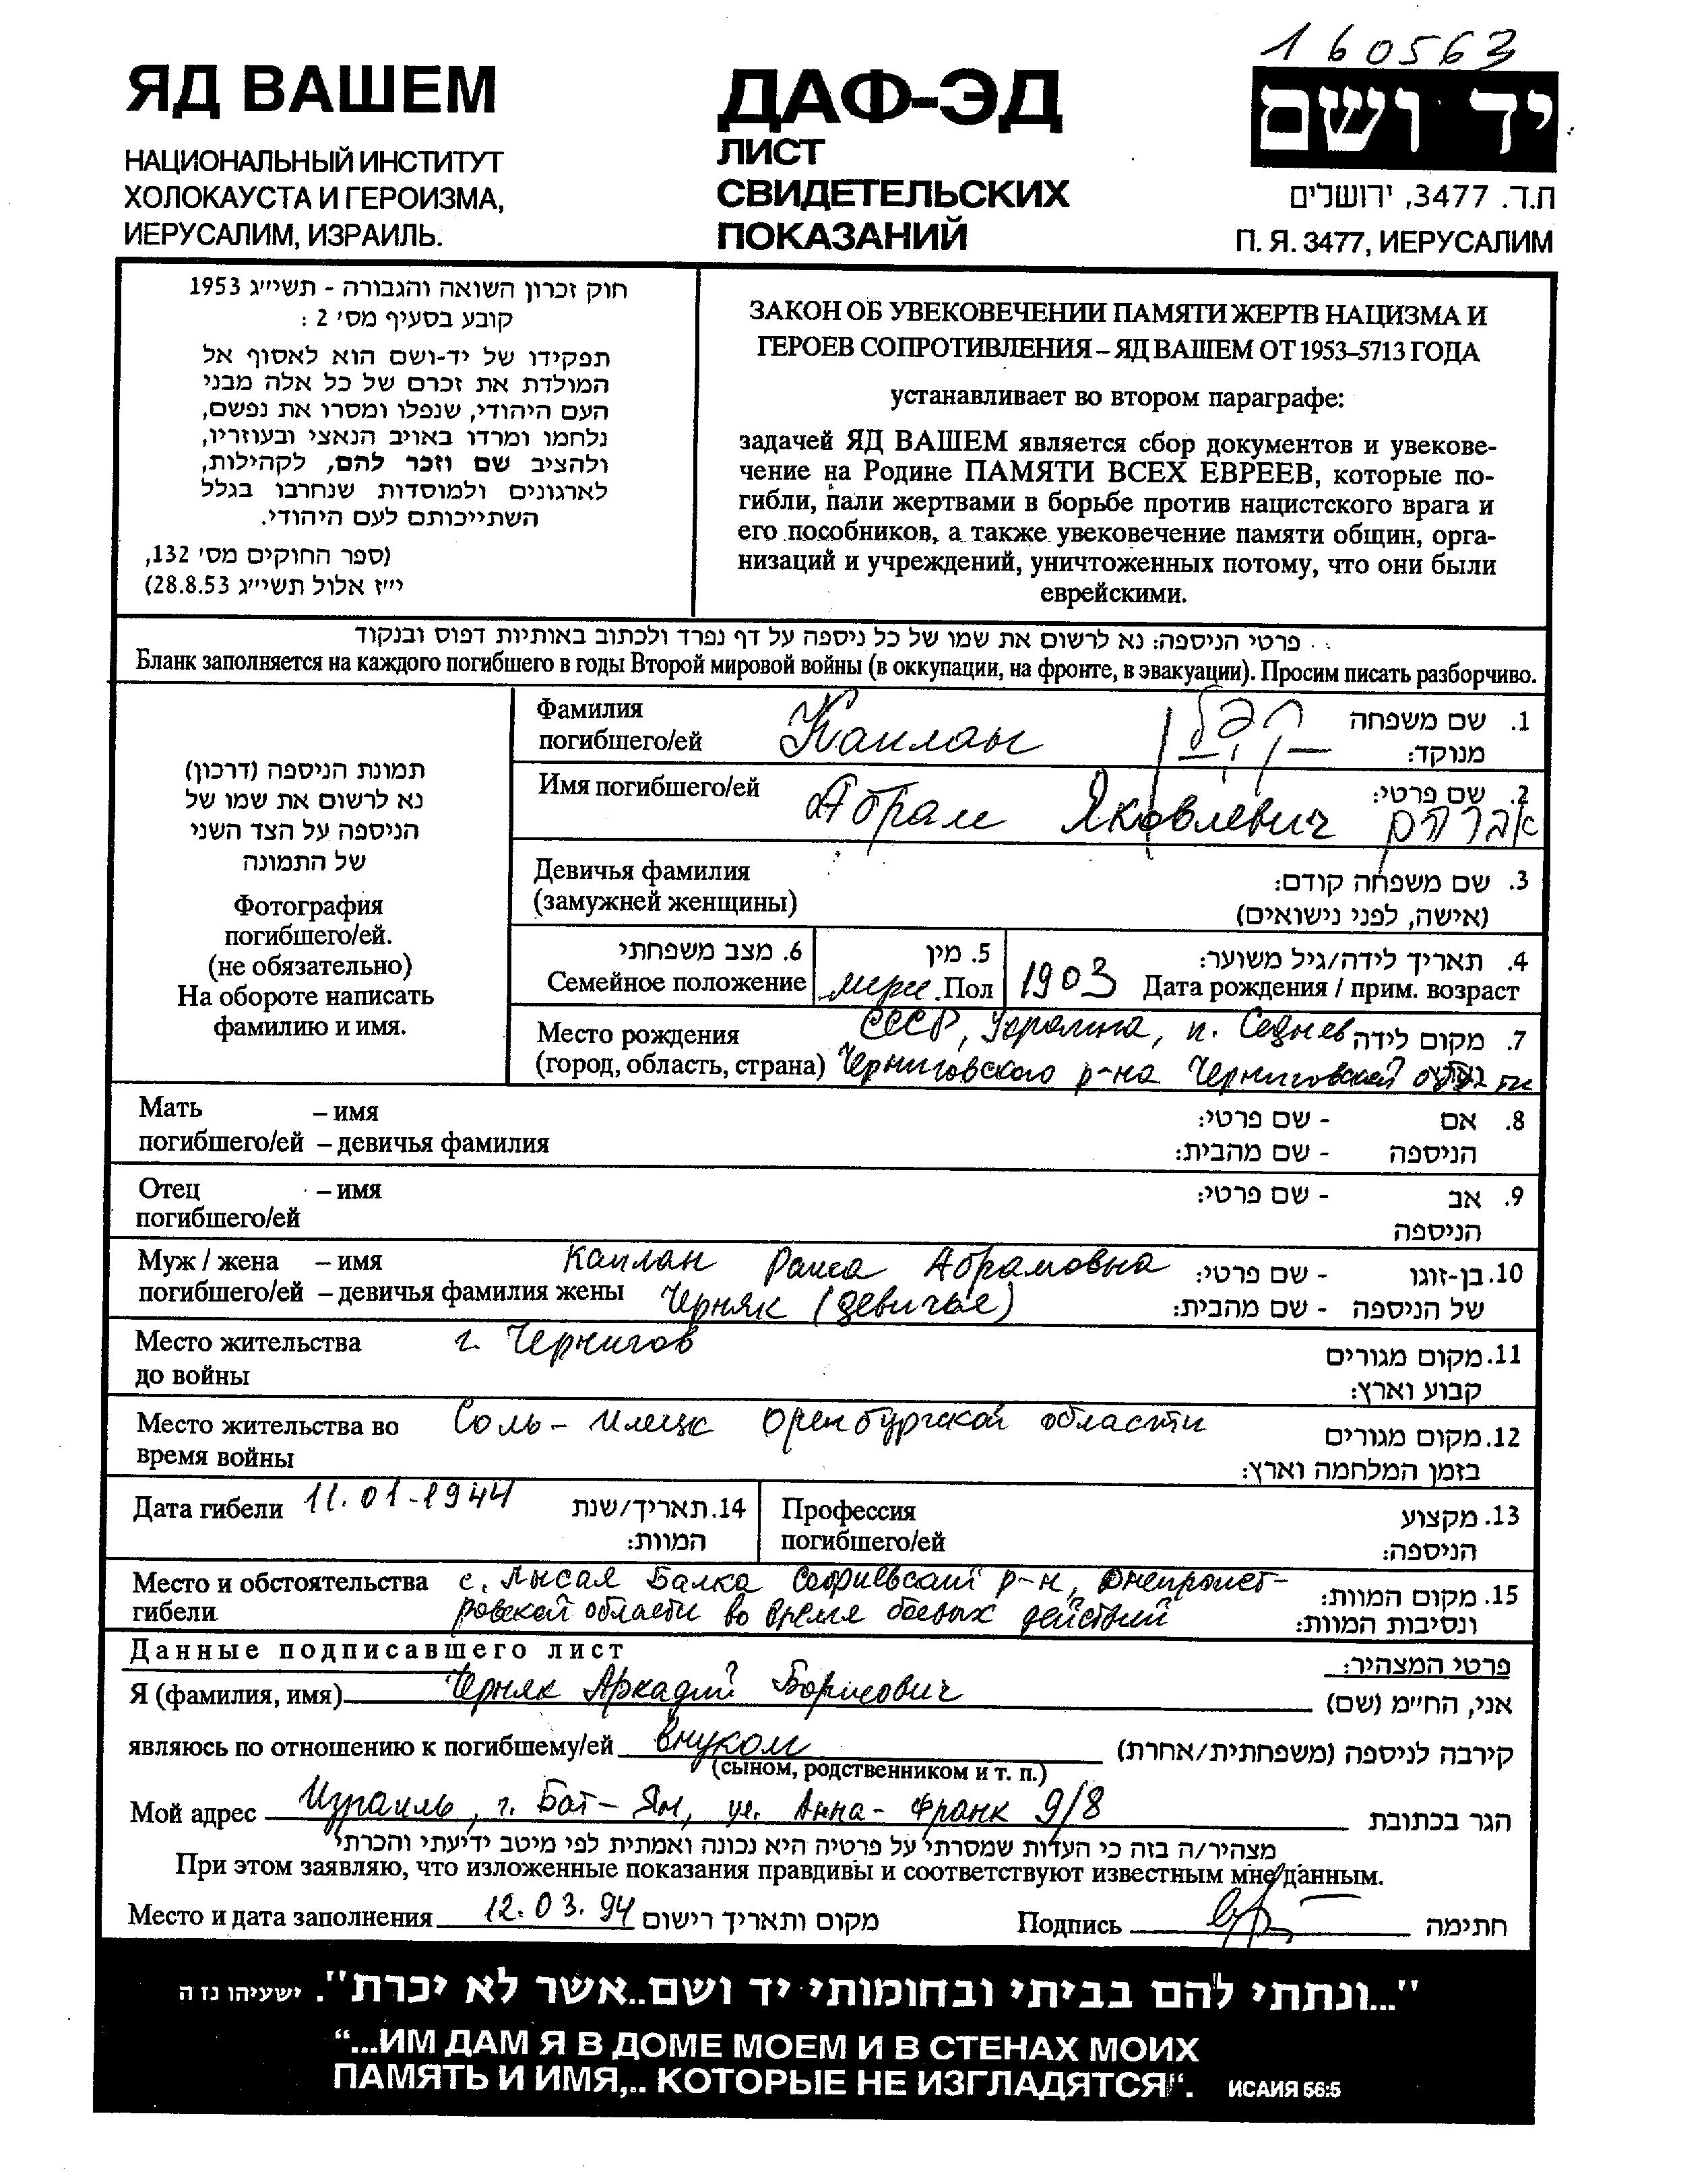 160563
ЯД ВАШЕМ
НАЦИОНАЛЬНЫЙ ИНСТИТУТ
ХОЛОКАУСТА И ГЕРОИЗМА,
ИЕРУСАЛИМ, ИЗРАИЛЬ.
ДАФ-ЭД
ЛИСТ
СВИДЕТЕЛЬСКИХ
ПОКАЗАНИЙ
יד ושם
ת.ד. 3477, ירושלים
П. Я. 3477, ИЕРУСАЛИМ
חוק זכרון השואה והגבורה - תשי״ג 1953
קובע בסעיף מס׳ 2 :
תפקידו של יד-ושם הוא לאסוף אל
המולדת את זכרם של כל אלה מבני
העם היהודי, שנפלו ומסרו את נפשם,
נלחמו ומרדו באויב הנאצי ובעוזריו,
ולהציב שם וזכר להם, לקהילות,
לארגונים ולמוסדות שנחרבו בגלל
השתייכותם לעם היהודי.
(ספר החוקים מס׳ 132,
י״ז אלול תשי״ג 28.8.53)
ЗАКОН ОБ УВЕКОВЕЧЕНИИ ПАМЯТИ ЖЕРТВ НАЦИЗМА И
ГЕРОЕВ СОПРОТИВЛЕНИЯ – ЯД ВАШЕМ ОТ 1953–5713 ГОДА
устанавливает во втором параграфе:
задачей ЯД ВАШЕМ является сбор документов и увекове-
чение на Родине ПАМЯТИ ВСЕХ ЕВРЕЕВ, которые по-
гибли, пали жертвами в борьбе против нацистского врага и
его пособников, а также увековечение памяти общин, орга-
низаций и учреждений, уничтоженных потому, что они были
еврейскими.
פרטי הניספה: נא לרשום את שמו של כל ניספה על דף נפרד ולכתוב באותיות דפוס ובנקוד
Бланк заполняется на каждого погибшего в годы Второй мировой войны (в оккупации, на фронте, в эвакуации). Просим писать разборчиво.
תמונת הניספה (דרכון)
נא לרשום את שמו של
הניספה על הצד השני
של התמונה
Фотография
погибшего/ей.
(не обязательно)
На обороте написать
фамилию и имя.
Фамилия Каплан קפלן 1. שם משפחה
погибшего/ей מנוקד:
Имя погибшего/ей Абрам Яковлевич 2. שם פרטי:
אברהם
Девичья фамилия 3. שם משפחה קודם:
(замужней женщины) (אישה, לפני נישואים)
6. מצב משפחתי 5. מין 4. תאריך לידה/גיל משוער:
Семейное положение муж. Пол 1903 Дата рождения / прим. возраст
Место рождения СССР, Украина, п. Седнев 7. מקום לידה
(город, область, страна) Черниговского р-на Черниговской обл-ти
Мать – имя - שם פרטי: 8. אם
погибшего/ей – девичья фамилия - שם מהבית: הניספה
Отец – имя - שם פרטי: 9. אב
погибшего/ей הניספה
Муж / жена – имя Каплан Раиса Абрамовна - שם פרטי: 10. בן-זוגו
погибшего/ей – девичья фамилия жены Черняк (девичье) - שם מהבית: של הניספה
Место жительства г. Чернигов 11. מקום מגורים
до войны קבוע וארץ:
Место жительства во Соль-Илецк Оренбургской области 12. מקום מגורים
время войны בזמן המלחמה וארץ:
Дата гибели 11.01-1944 14. תאריך/שנת Профессия 13. מקצוע
המוות: погибшего/ей הניספה:
Место и обстоятельства с. Лысая Балка Софиевский р-н, Днепропет- 15. מקום המוות:
гибели ровской области во время боевых действий ונסיבות המוות:
Данные подписавшего лист פרטי המצהיר:
Я (фамилия, имя) Черняк Аркадий Борисович אני, החי״מ (שם)
являюсь по отношению к погибшему/ей внуком קירבה לניספה (משפחתית/אחרת)
(сыном, родственником и т. п.)
Мой адрес Израиль, г. Бат-Ям, ул. Анна-Франк 9/8 הגר בכתובת
מצהיר/ה בזה כי העדות שמסרתי על פרטיה היא נכונה ואמתית לפי מיטב ידיעתי והכרתי
При этом заявляю, что изложенные показания правдивы и соответствуют известным мне данным.
Место и дата заполнения 12.03.94 מקום ותאריך רישום Подпись חתימה
"...ונתתי להם בביתי ובחומותי יד ושם..אשר לא יכרת". ישעיהו נז ה
“...ИМ ДАМ Я В ДОМЕ МОЕМ И В СТЕНАХ МОИХ
ПАМЯТЬ И ИМЯ,.. КОТОРЫЕ НЕ ИЗГЛАДЯТСЯ“. ИСАИЯ 56:5